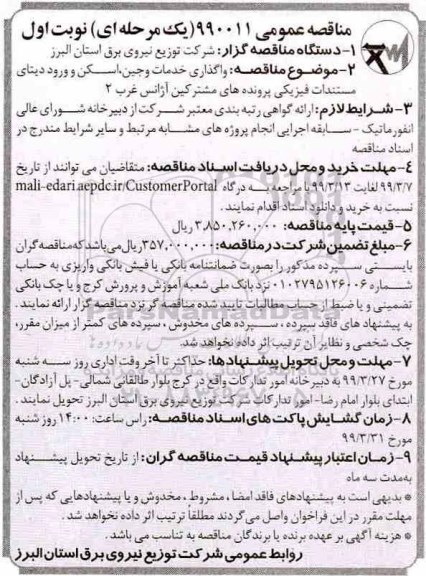 مناقصه عمومی ۹۹۰۰۱۱ (یک مرحله ای) نوبت اول
۱- دستگاه مناقصه گزار: شرکت توزیع نیروی برق استان البرز
۲- موضوع مناقصه: واگذاری خدمات وجین، اسکن و ورود دیتای
مستندات فیزیکی پرونده های مشترکین آژانس غرب ۲
۳- شرایط لازم: ارائه گواهی رتبه بندی معتبر شرکت از دبیرخانه شورای عالی
انفورماتیک - سابقه اجرایی انجام پروژه های مشابه مرتبط و سایر شرایط مندرج در
اسناد مناقصه
۴- مهلت خرید و محل دریافت اسناد مناقصه: متقاضیان می توانند از تاریخ
۹۹/۳/۷ لغایت ۹۹/۳/۱۳ با مراجعه به درگاه mali-edari.aepdc.ir/CustomerPortal
نسبت به خرید و دانلود اسناد اقدام نمایند.
۵- قیمت پایه مناقصه: ۳,۸۵۰,۲۶۰,۰۰۰ ریال
۶- مبلغ تضمین شرکت در مناقصه: ۳۵۷,۰۰۰,۰۰۰ ریال می باشد که مناقصه گران
بایستی سپرده مذکور را بصورت ضمانتنامه بانکی یا فیش بانکی واریزی به حساب
شماره ۰۱۰۲۷۹۵۱۲۶۰۰۶ نزد بانک ملی شعبه آموزش و پرورش کرج و یا چک بانکی
تضمینی و یا ضبط از حساب مطالبات تایید شده مناقصه گر نزد مناقصه گزار ارائه نمایند.
به پیشنهاد های فاقد سپرده، سپرده های مخدوش، سپرده های کمتر از میزان مقرر،
چک شخصی و نظایر آن ترتیب اثر داده نخواهد شد.
۷- مهلت و محل تحویل پیشنهادها: حداکثر تا آخر وقت اداری روز سه شنبه
مورخ ۹۹/۳/۲۷ به دبیرخانه امور تدارکات واقع در کرج بلوار طالقانی شمالی- پل آزادگان-
ابتدای بلوار امام رضا- امور تدارکات شرکت توزیع نیروی برق استان البرز تحویل نمایند.
۸- زمان گشایش پاکت های اسناد مناقصه: راس ساعت: ۱۴:۰۰ روز شنبه
مورخ ۹۹/۳/۳۱
۹- زمان اعتبار پیشنهاد قیمت مناقصه گران: از تاریخ تحویل پیشنهاد
به مدت سه ماه
* بدیهی است به پیشنهادهای فاقد امضا، مشروط، مخدوش و یا پیشنهادهایی که پس از
مهلت مقرر در این فراخوان واصل می گردند مطلقاً ترتیب اثر داده نخواهد شد.
* هزینه آگهی بر عهده برنده یا برندگان مناقصه به تناسب می باشد.
روابط عمومی شرکت توزیع نیروی برق استان البرز